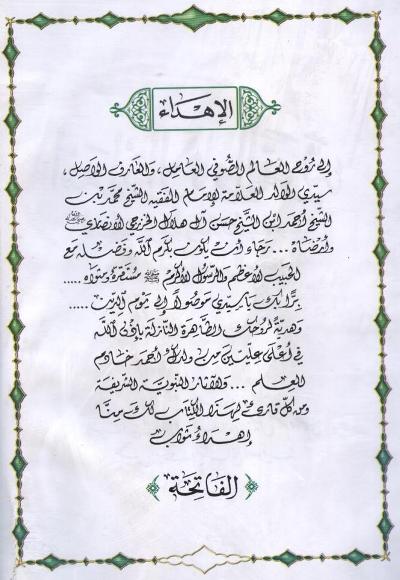 الإهداء
إلى رُوح العالم الصُّوفي العامل، والعارف الواصل،
سيدي الوالد العلامة الإمام الفقيه الشيخ محمد بن
الشيخ أحمد ابن الشيخ حسن آل هلال الخزرجي الأنصاري
وأرضاه... رجاء أن يكون بكرم الله وفضله مع
الحبيب الأعظم والرسول الأكرم ﷺ مستقره ومثواه.....
برًا بك يا سيدي موصولاً إلى يوم الدين.....
وهدية لروحك الطاهرة النازلة بإذن الله
في أعلى عليين من ولدك أحمد خادم
العلم... والآثار النبوية الشريفة
ومن كل قارئ لهذا الكتاب لك منا
إهداء ثواب
الفاتحة